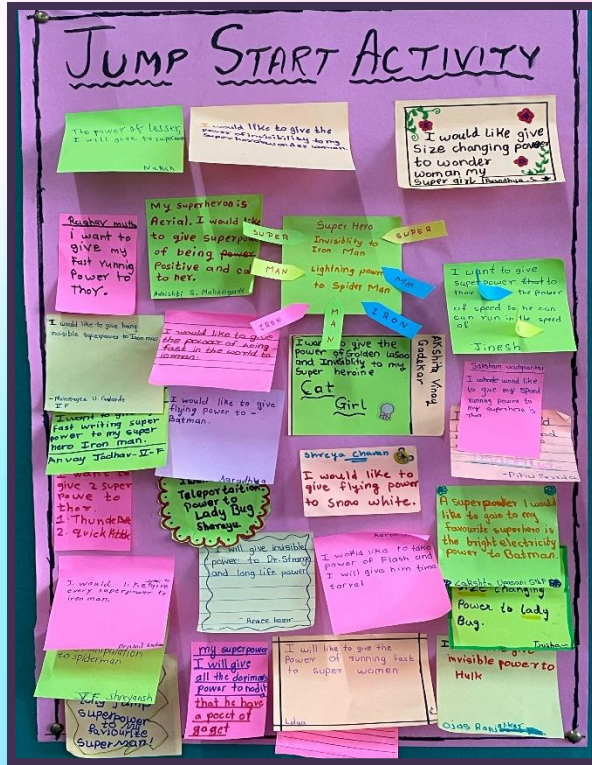 JUMP START ACTIVITY
The power of lesser,
I will give to super
I would like to give the
power of invisibility to my
super hero wonder women.
I would like give
size changing power
to wonder
woman my
super girl
Raghav
i want to
give my
Fast runnig
Power to
Thor.
My superheron is
Aerial. I would like
to give superpower
of being power
Positive and
to her.
Super Hero
Invisiblity to
Iron Man
Lightning power
to Spider Man
SUPER
MAN
IRON
MAN
IRON
Man
SUPER
I want to give
super power that to
thor the power
of speed so he can
can run in the speed
of
-Jinesh
I would like to give being
invisible superpower to Iron man
I would like to give
the powder of being
fast in the world to
I want to give the
power of Golden lasoo
and Invisiblity to my
Super heroine
Cat
Girl
Akshita Vinay
Godekar
Saksham
I whole wood like
to give my speed
running power to
my superhero is
thor
I want to give
fast writing super
power to my super
hero Iron man.
Anvay Jadhav-V-F
I would like to give
flying power to
Batman.
Aaradhya
shreya chavan
I would like to
give flying power
to Snow white.
give 2 super
powe to
thor.
1. Thunde Bolt
2. quick Attk
Teleportaition
power to
Lady Bug
Sharayu
A superpower I would
like to gain to my
favourite superhero is
the bright electricity
power to Batman.
Lakshta Upasani
size changing
Power to lady
Bug.
Trusha
I will give invisible
power to Dr. Strang
and long life power
I would like to take
power of Flash and
I will give him time
tarvel
I would like to give
every superpower to
iron man.
to spiderman
V.F shreyansh
superpower
to my
favourite
Superman!
my superpower
I will give
all the dorimon
power to nodit
that he have
a pocct of
gaget
I will like to give the
Power of running fast
to super women
invisible power to
Hulk
Ojas